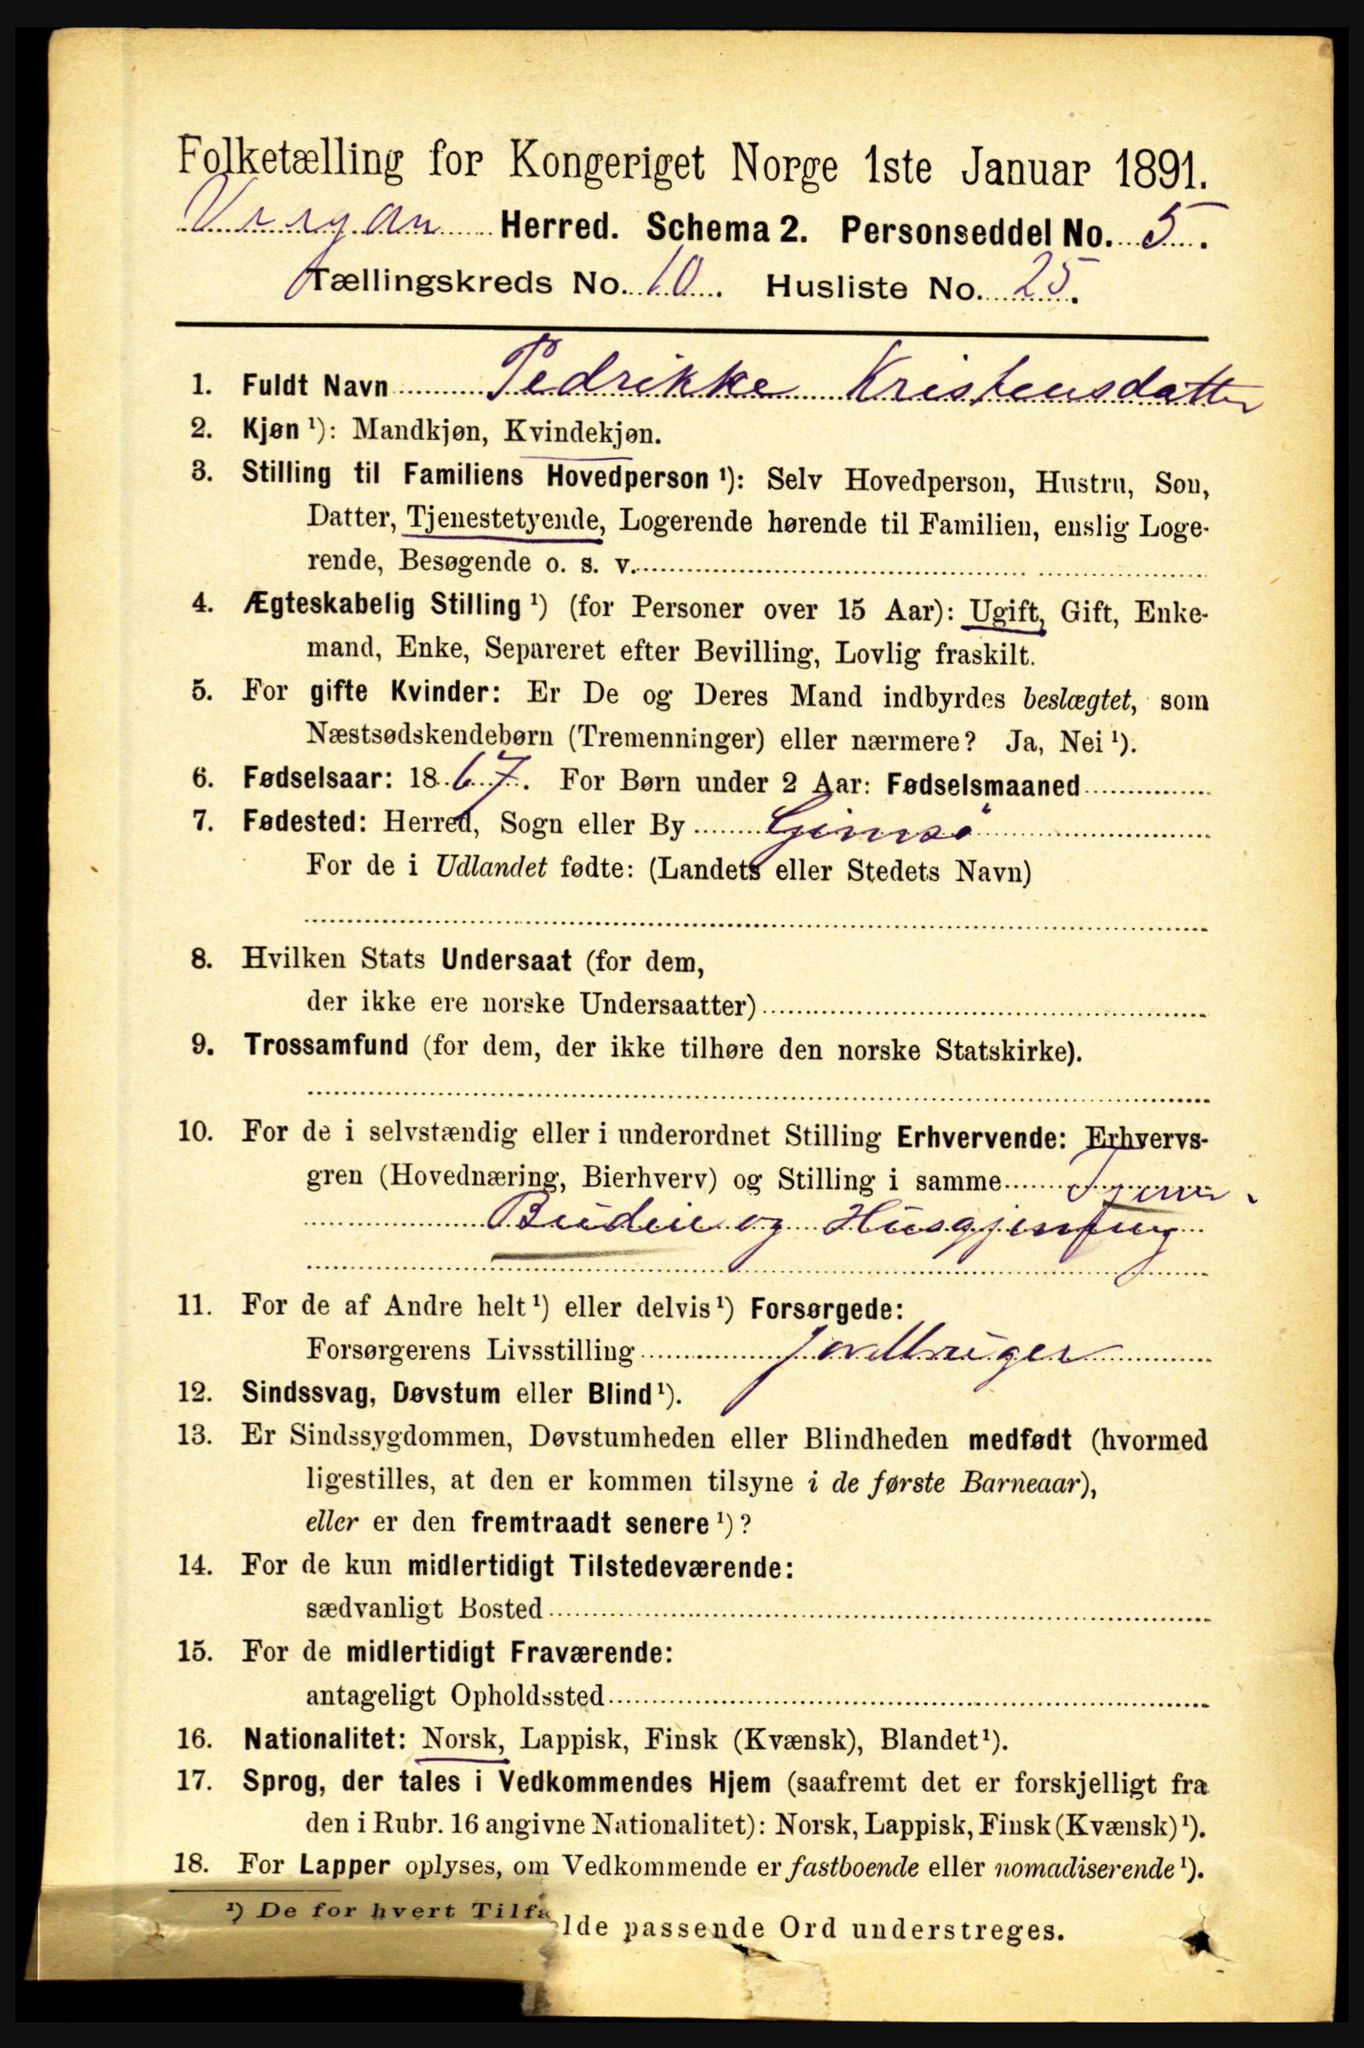 Folketælling for Kongeriget Norge 1ste Januar 1891.
Herred. Schema 2. Personseddel No. 5.
Tællingskreds No. 10. Husliste No. 25.
1. Fuldt Navn Pedrikke Kristensdatter
2. Kjøn ¹): Mandkjøn, Kvindekjøn.
3. Stilling til Familiens Hovedperson ¹): Selv Hovedperson, Hustru, Søn,
Datter, Tjenestetyende, Logerende hørende til Familien, enslig Loge-
rende, Besøgende o. s. v.
4. Ægteskabelig Stilling ¹) (for Personer over 15 Aar): Ugift, Gift, Enke-
mand, Enke, Separeret efter Bevilling, Lovlig fraskilt.
5. For gifte Kvinder: Er De og Deres Mand indbyrdes beslægtet, som
Næstsødskendebørn (Tremenninger) eller nærmere? Ja, Nei ¹).
6. Fødselsaar: 1867. For Børn under 2 Aar: Fødselsmaaned
7. Fødested: Herred, Sogn eller By Gimsø
For de i Udlandet fødte: (Landets eller Stedets Navn)
8. Hvilken Stats Undersaat (for dem,
der ikke ere norske Undersaatter)
9. Trossamfund (for dem, der ikke tilhøre den norske Statskirke).
10. For de i selvstændig eller i underordnet Stilling Erhvervende: Erhvervs-
gren (Hovednæring, Bierhverv) og Stilling i samme
Budeie og Husgjerning
11. For de af Andre helt ¹) eller delvis ¹) Forsørgede:
Forsørgerens Livsstilling jordbruger
12. Sindssvag, Døvstum eller Blind ¹).
13. Er Sindssygdommen, Døvstumheden eller Blindheden medfødt (hvormed
ligestilles, at den er kommen tilsyne i de første Barneaar),
eller er den fremtraadt senere ¹)?
14. For de kun midlertidigt Tilstedeværende:
sædvanligt Bosted
15. For de midlertidigt Fraværende:
antageligt Opholdssted
16. Nationalitet: Norsk, Lappisk, Finsk (Kvænsk), Blandet ¹).
17. Sprog, der tales i Vedkommendes Hjem (saafremt det er forskjelligt fra
den i Rubr. 16 angivne Nationalitet): Norsk, Lappisk, Finsk (Kvænsk) ¹).
18. For Lapper oplyses, om Vedkommende er fastboende eller nomadiserende ¹).
¹) De for hvert Tilfælde passende Ord understreges.